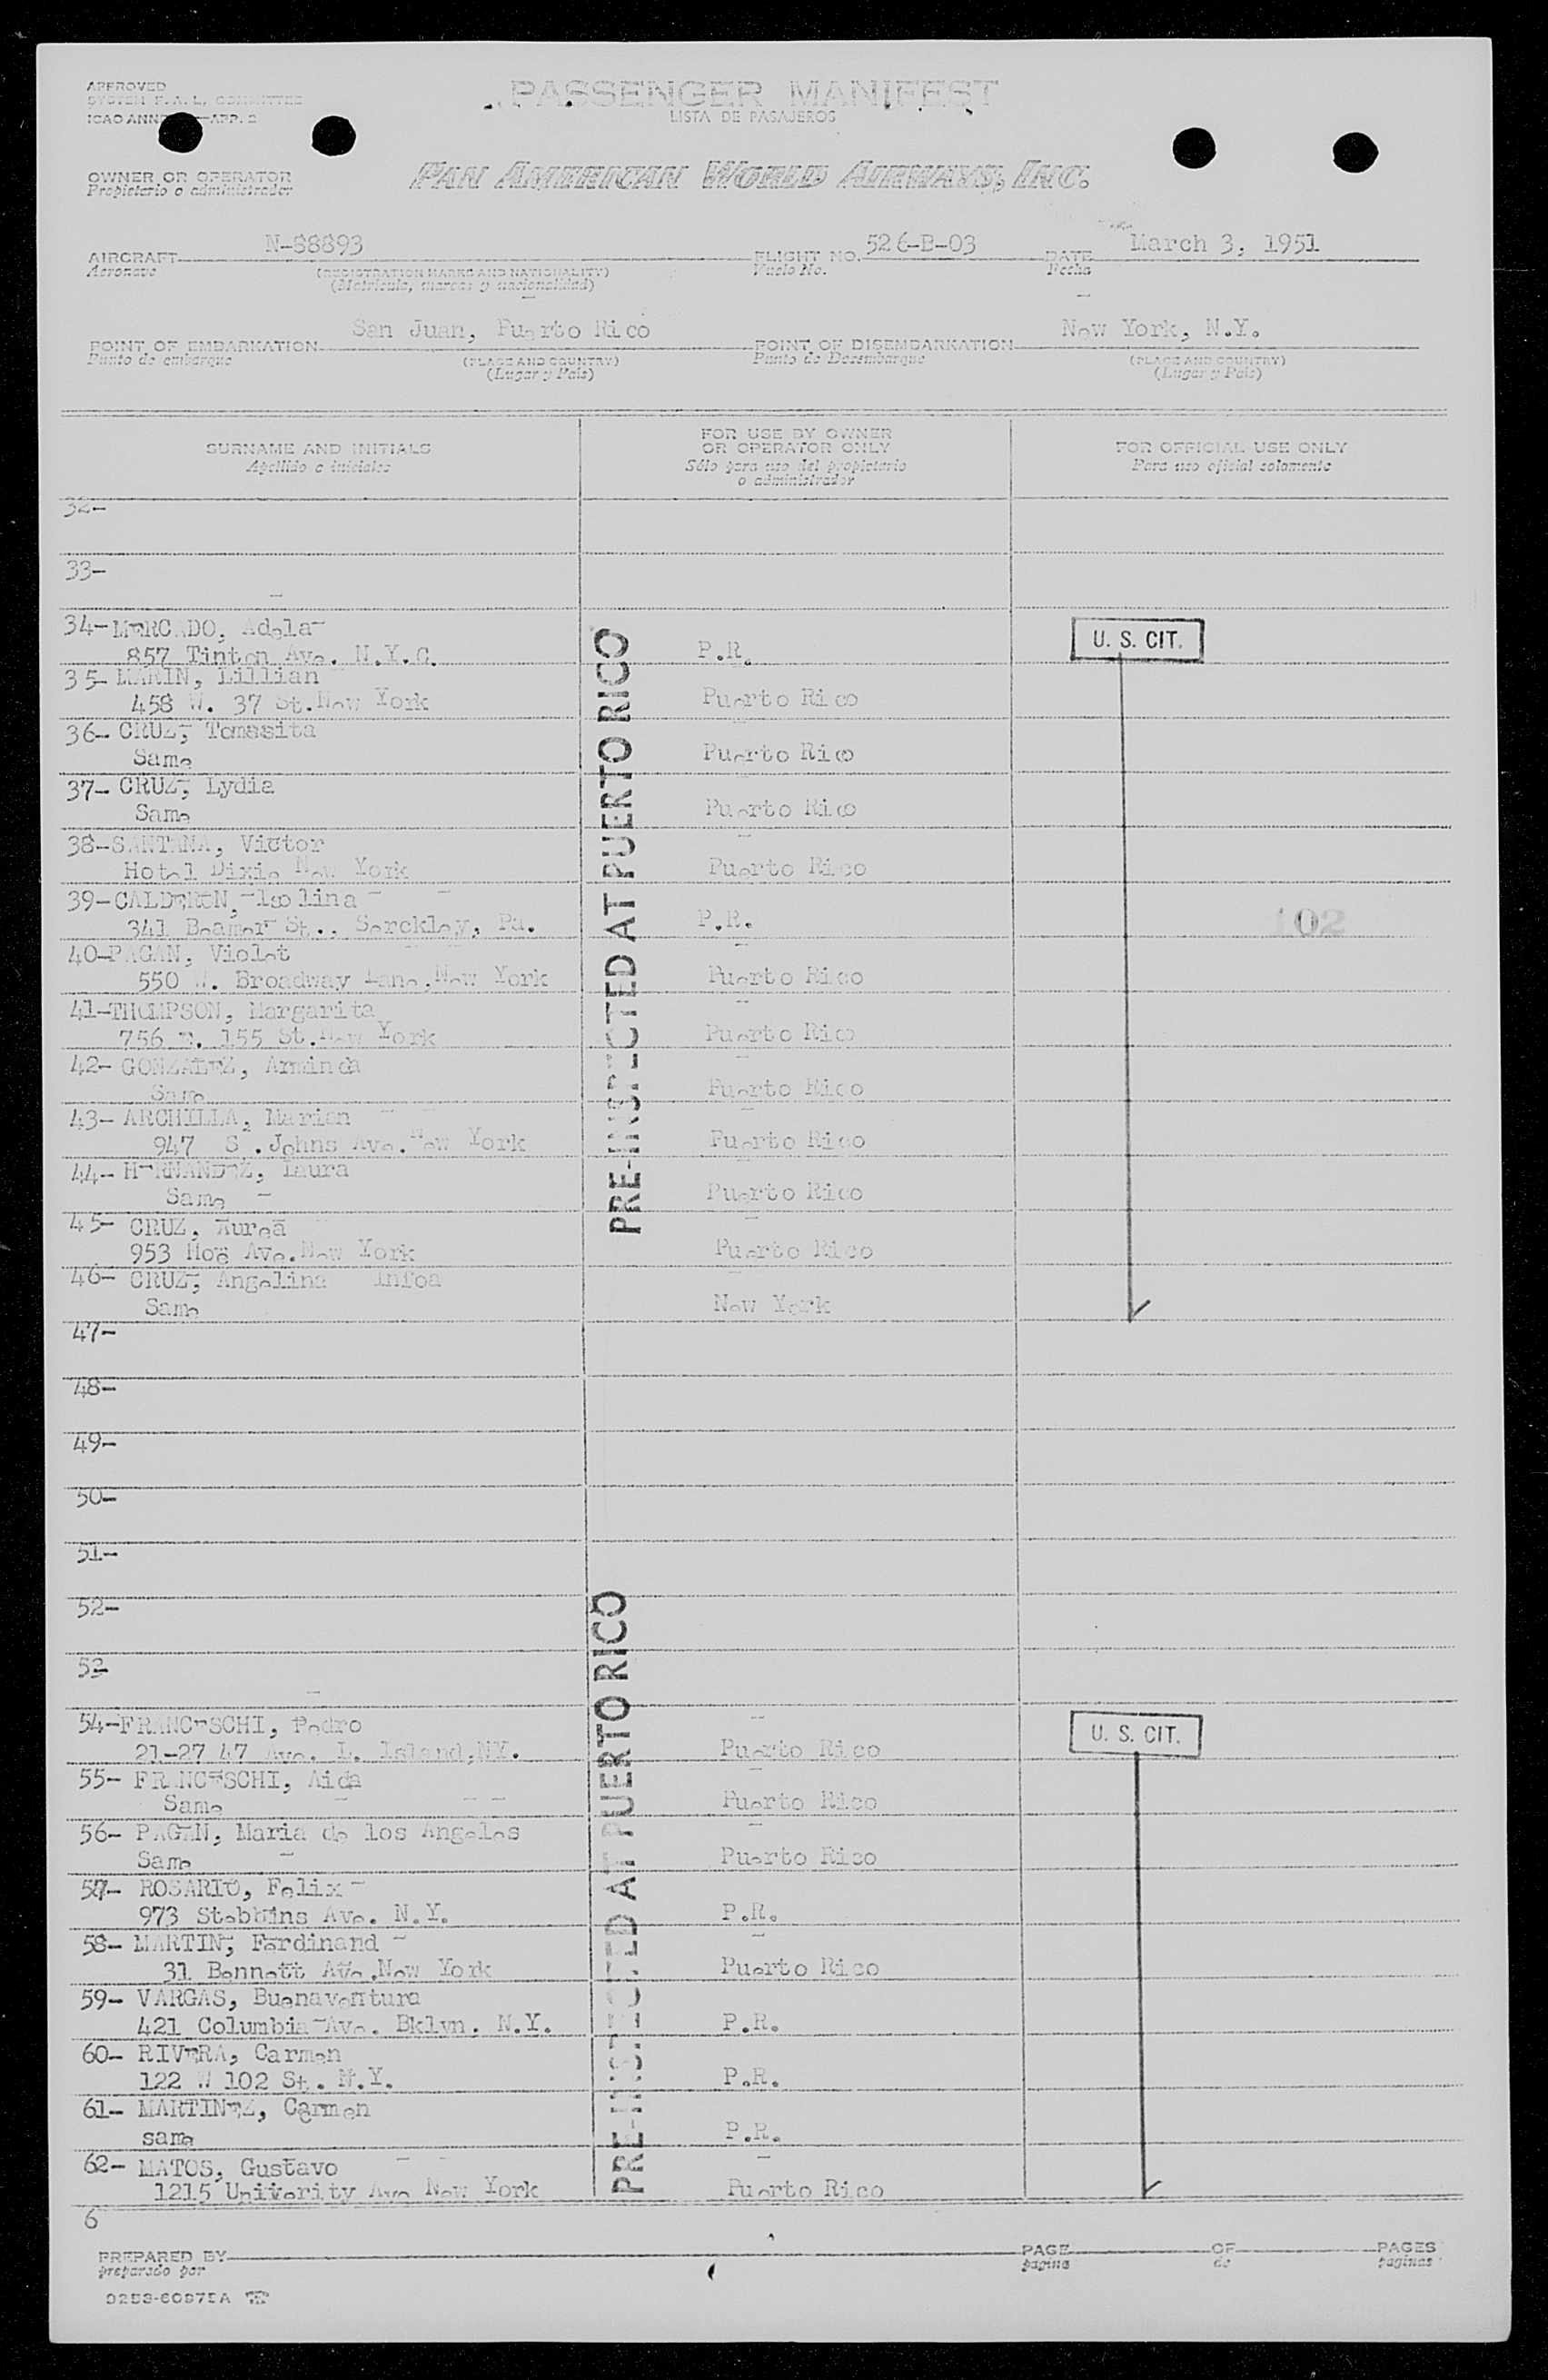 APPROVED
SYSTEM F.A.L. COMMITTEE
ICAO ANNEX APP. 2
PASSENGER MANIFEST
LISTA DE PASAJEROS
OWNER OR OPERATOR
Propietario o administrador
PAN AMERICAN WORLD AIRWAYS, INC.
AIRCRAFT N-88893 FLIGHT NO. 526-B-03 DATE March 3, 1951
Aeronave (REGISTRATION MARKS AND NATIONALITY) Vuelo No. Fecha
(Matricula, marcas y nacionalidad)
POINT OF EMBARKATION San Juan, Puerto Rico POINT OF DISEMBARKATION New York, N.Y.
Punto de embarque (PLACE AND COUNTRY) Punto de Desembarque (PLACE AND COUNTRY)
(Lugar y Pais) (Lugar y Pais)
SURNAME AND INITIALS FOR USE BY OWNER OR OPERATOR ONLY FOR OFFICIAL USE ONLY
Apellido e iniciales Sólo para uso del propietario o administrador Para uso oficial solamente
32-
33-
34- MERCADO, Adela U. S. CIT.
857 Tinton Ave. N.Y.C. P.R.
35- MARIN, Lillian
458 W. 37 St. New York Puerto Rico
36- CRUZ, Tomasita
Same Puerto Rico
37- CRUZ, Lydia
Same Puerto Rico
38- SANTANA, Victor
Hotel Dixie New York Puerto Rico
39- CALDERON, Isolina
341 Beamer St., Serckley, Pa. P.R. 102
40- PAGAN, Violet
550 W. Broadway Lane, New York Puerto Rico
41- THOMPSON, Margarita
756 E. 155 St. New York Puerto Rico
42- GONZALEZ, Arminda
Same Puerto Rico
43- ARCHILLA, Marian
947 S . Johns Ave. New York Puerto Rico
44- HERNANDEZ, Laura
Same Puerto Rico
45- CRUZ, Aurea
953 Hoe Ave. New York Puerto Rico
46- CRUZ, Angelina Infoa
Same New York
PRE-INSPECTED AT PUERTO RICO
47-
48-
49-
50-
51-
52-
53-
54- FRANCESCHI, Pedro U. S. CIT.
21-27 47 Ave. L. Island, NY. Puerto Rico
55- FRANCESCHI, Aida
Same Puerto Rico
56- PAGAN, Maria de los Angeles
Same Puerto Rico
57- ROSARIO, Felix
973 Stebbins Ave. N.Y. P.R.
58- MARTIN, Ferdinand
31 Bennett Ave. New York Puerto Rico
59- VARGAS, Buenaventura
421 Columbia Ave. Bklyn. N.Y. P.R.
60- RIVERA, Carmen
122 W 102 St. N.Y. P.R.
61- MARTINEZ, Carmen
same P.R.
62- MATOS, Gustavo
1215 Univerity Ave New York Puerto Rico
PRE-INSPECTED AT PUERTO RICO
6
PREPARED BY PAGE OF PAGES
preparado por pagina de paginas